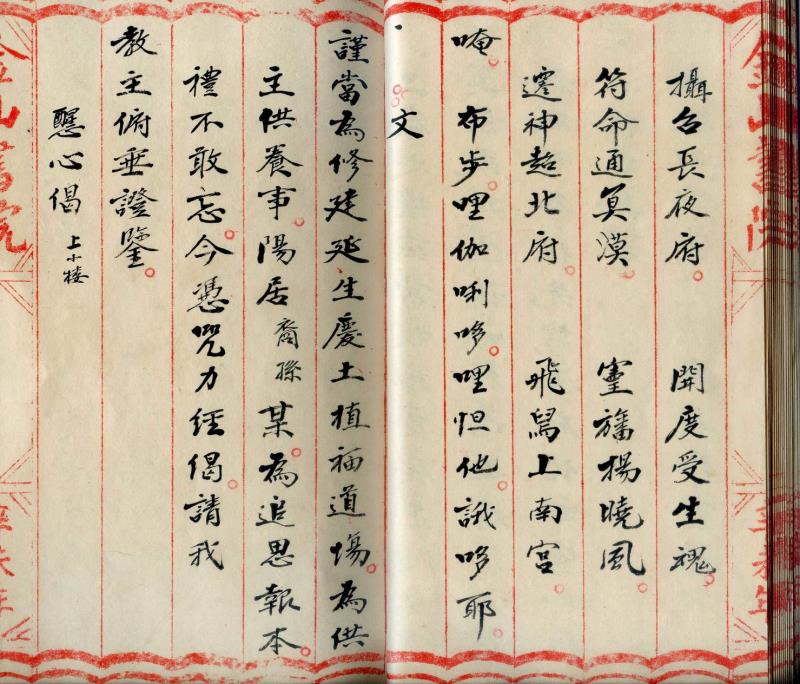 攝召長夜府。 開度受生魂。
符命通冥漠 靈旛揚曉風
遷神超北府。 飛舄上南宮。
唵。 布步哩伽唎哆。哩怛他誐哆耶。
文
謹當為修建延生慶土植福道場。為供
主供養事。陽居裔孫某。為追思報本。
禮不敢忘。今憑咒力經偈。請我
教主俯垂證鑒。
醒心偈 上小楼
金山書院